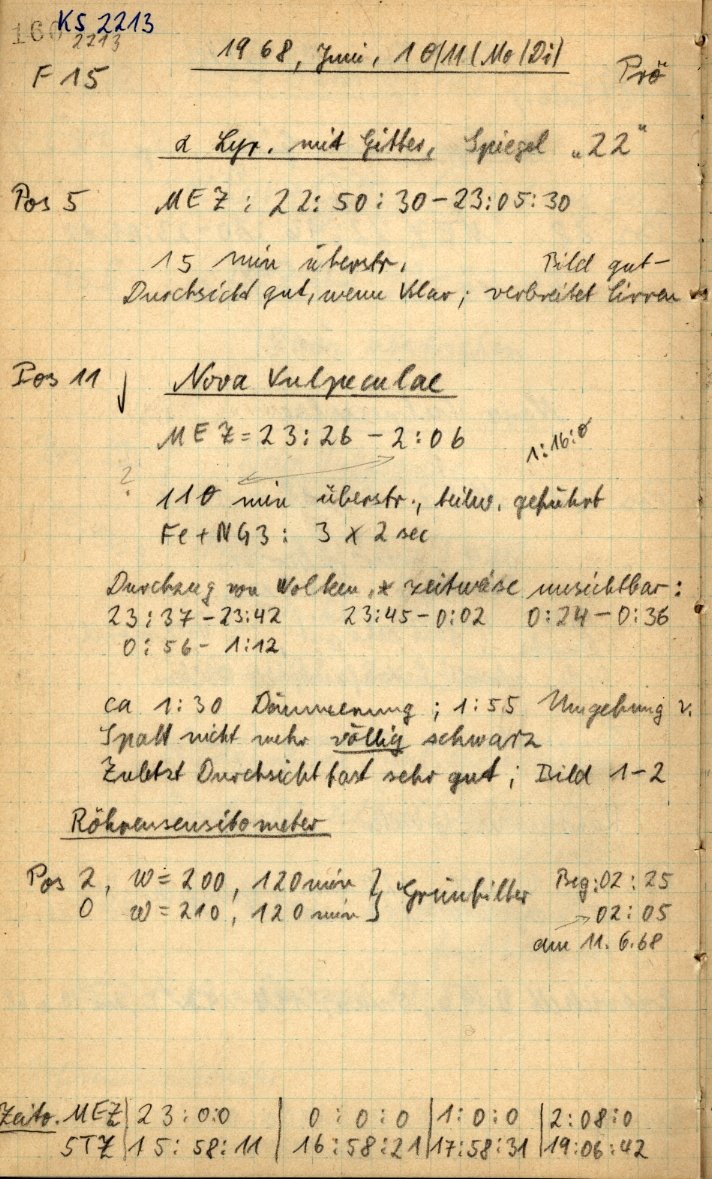 160 KS 2213
2213
F 15 1968, Juni, 10/11 (Mo/Di) Prö
α Lyr. mit Gitter, Spiegel „22“
Pos 5 MEZ: 22:50:30-23:05:30
15 min überstr. Bild gut-
Durchsicht gut, wenn klar; verbreitet Cirren
Pos 11 Nova Vulpeculae
MEZ = 23:26 - 2:06 1:16:0
?
110 min überstr., teilw. geführt
Fe+NG3: 3 x 2 sec
Durchzug von Wolken, * zeitweise unsichtbar:
23:37-23:42 23:45-0:02 0:24-0:36
0:56-1:12
ca 1:30 Dämmerung; 1:55 Umgebung v.
Spalt nicht mehr völlig schwarz
Zuletzt Durchsicht fast sehr gut; Bild 1-2
Röhrensensitometer
Pos 2, w=200, 120 min } Grünfilter Beg: 02:25
0 w=210, 120 min } 02:05
am 11.6.68
Zeitv. MEZ | 23:0:0 | 0:0:0 | 1:0:0 | 2:08:0
STZ | 15:58:11 | 16:58:21 | 17:58:31 | 19:06:42